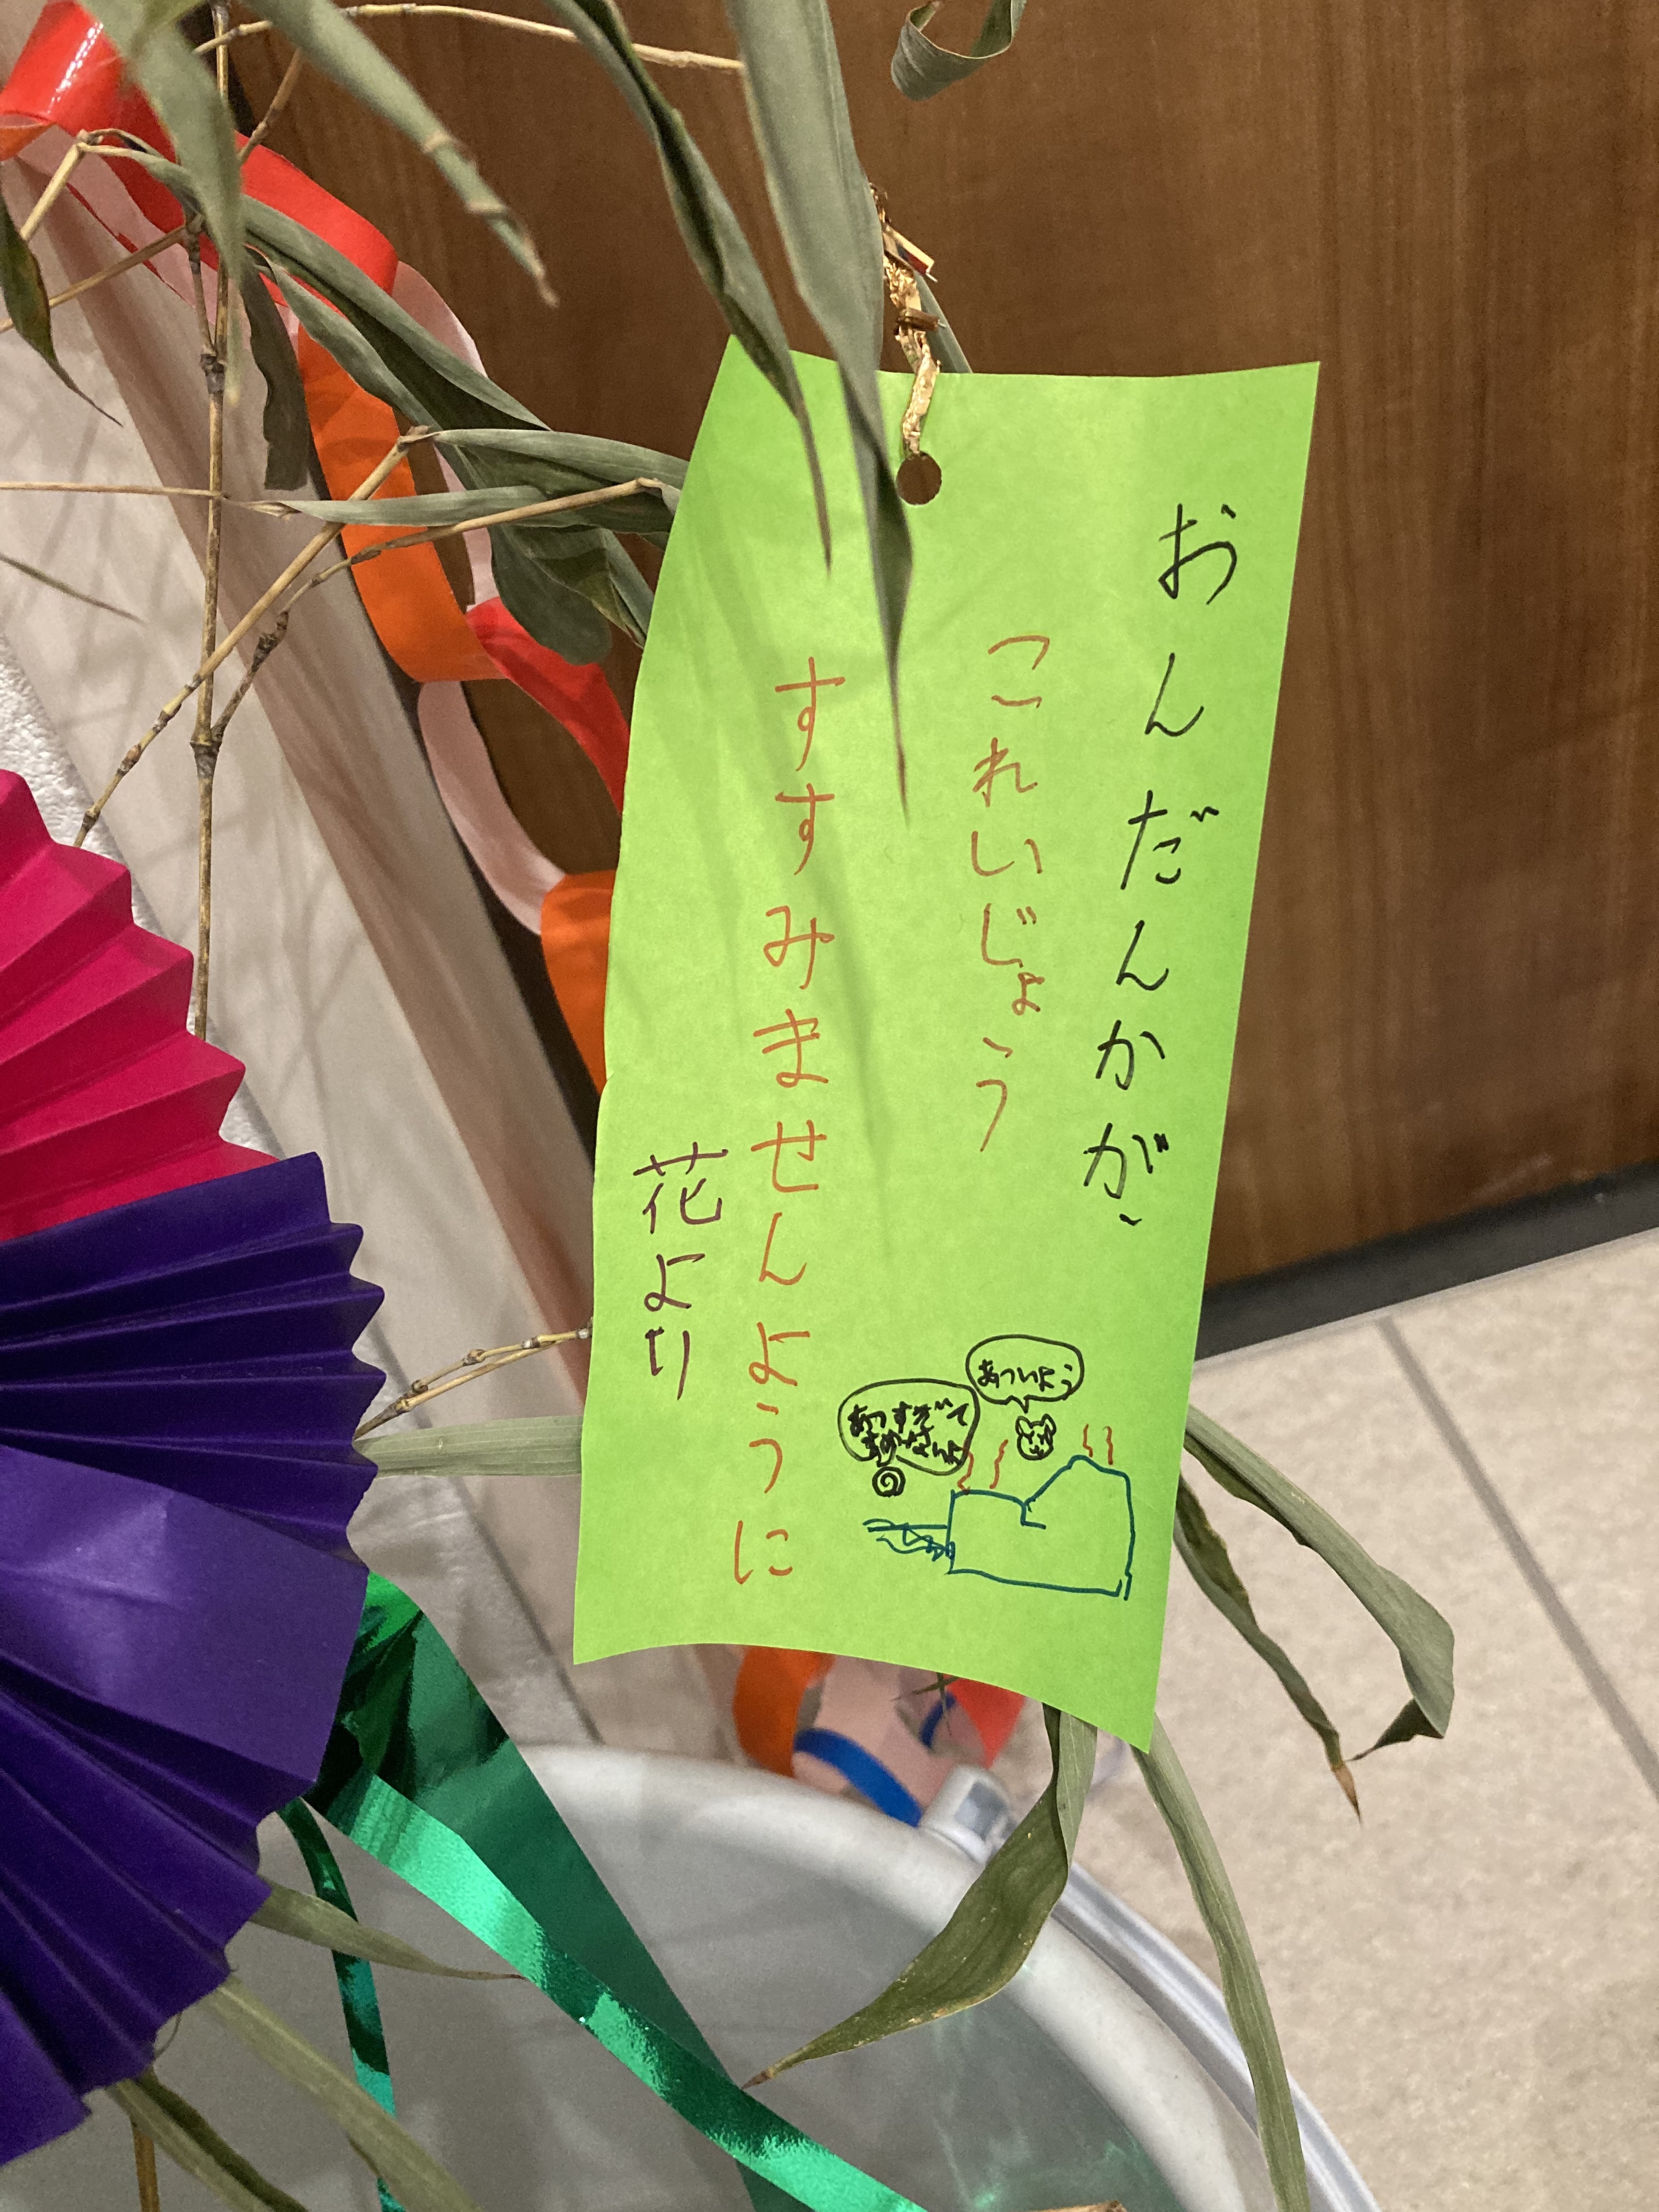 おんだんかが、
これいじょう
すすみませんように
花より
あついよう
あつすぎて